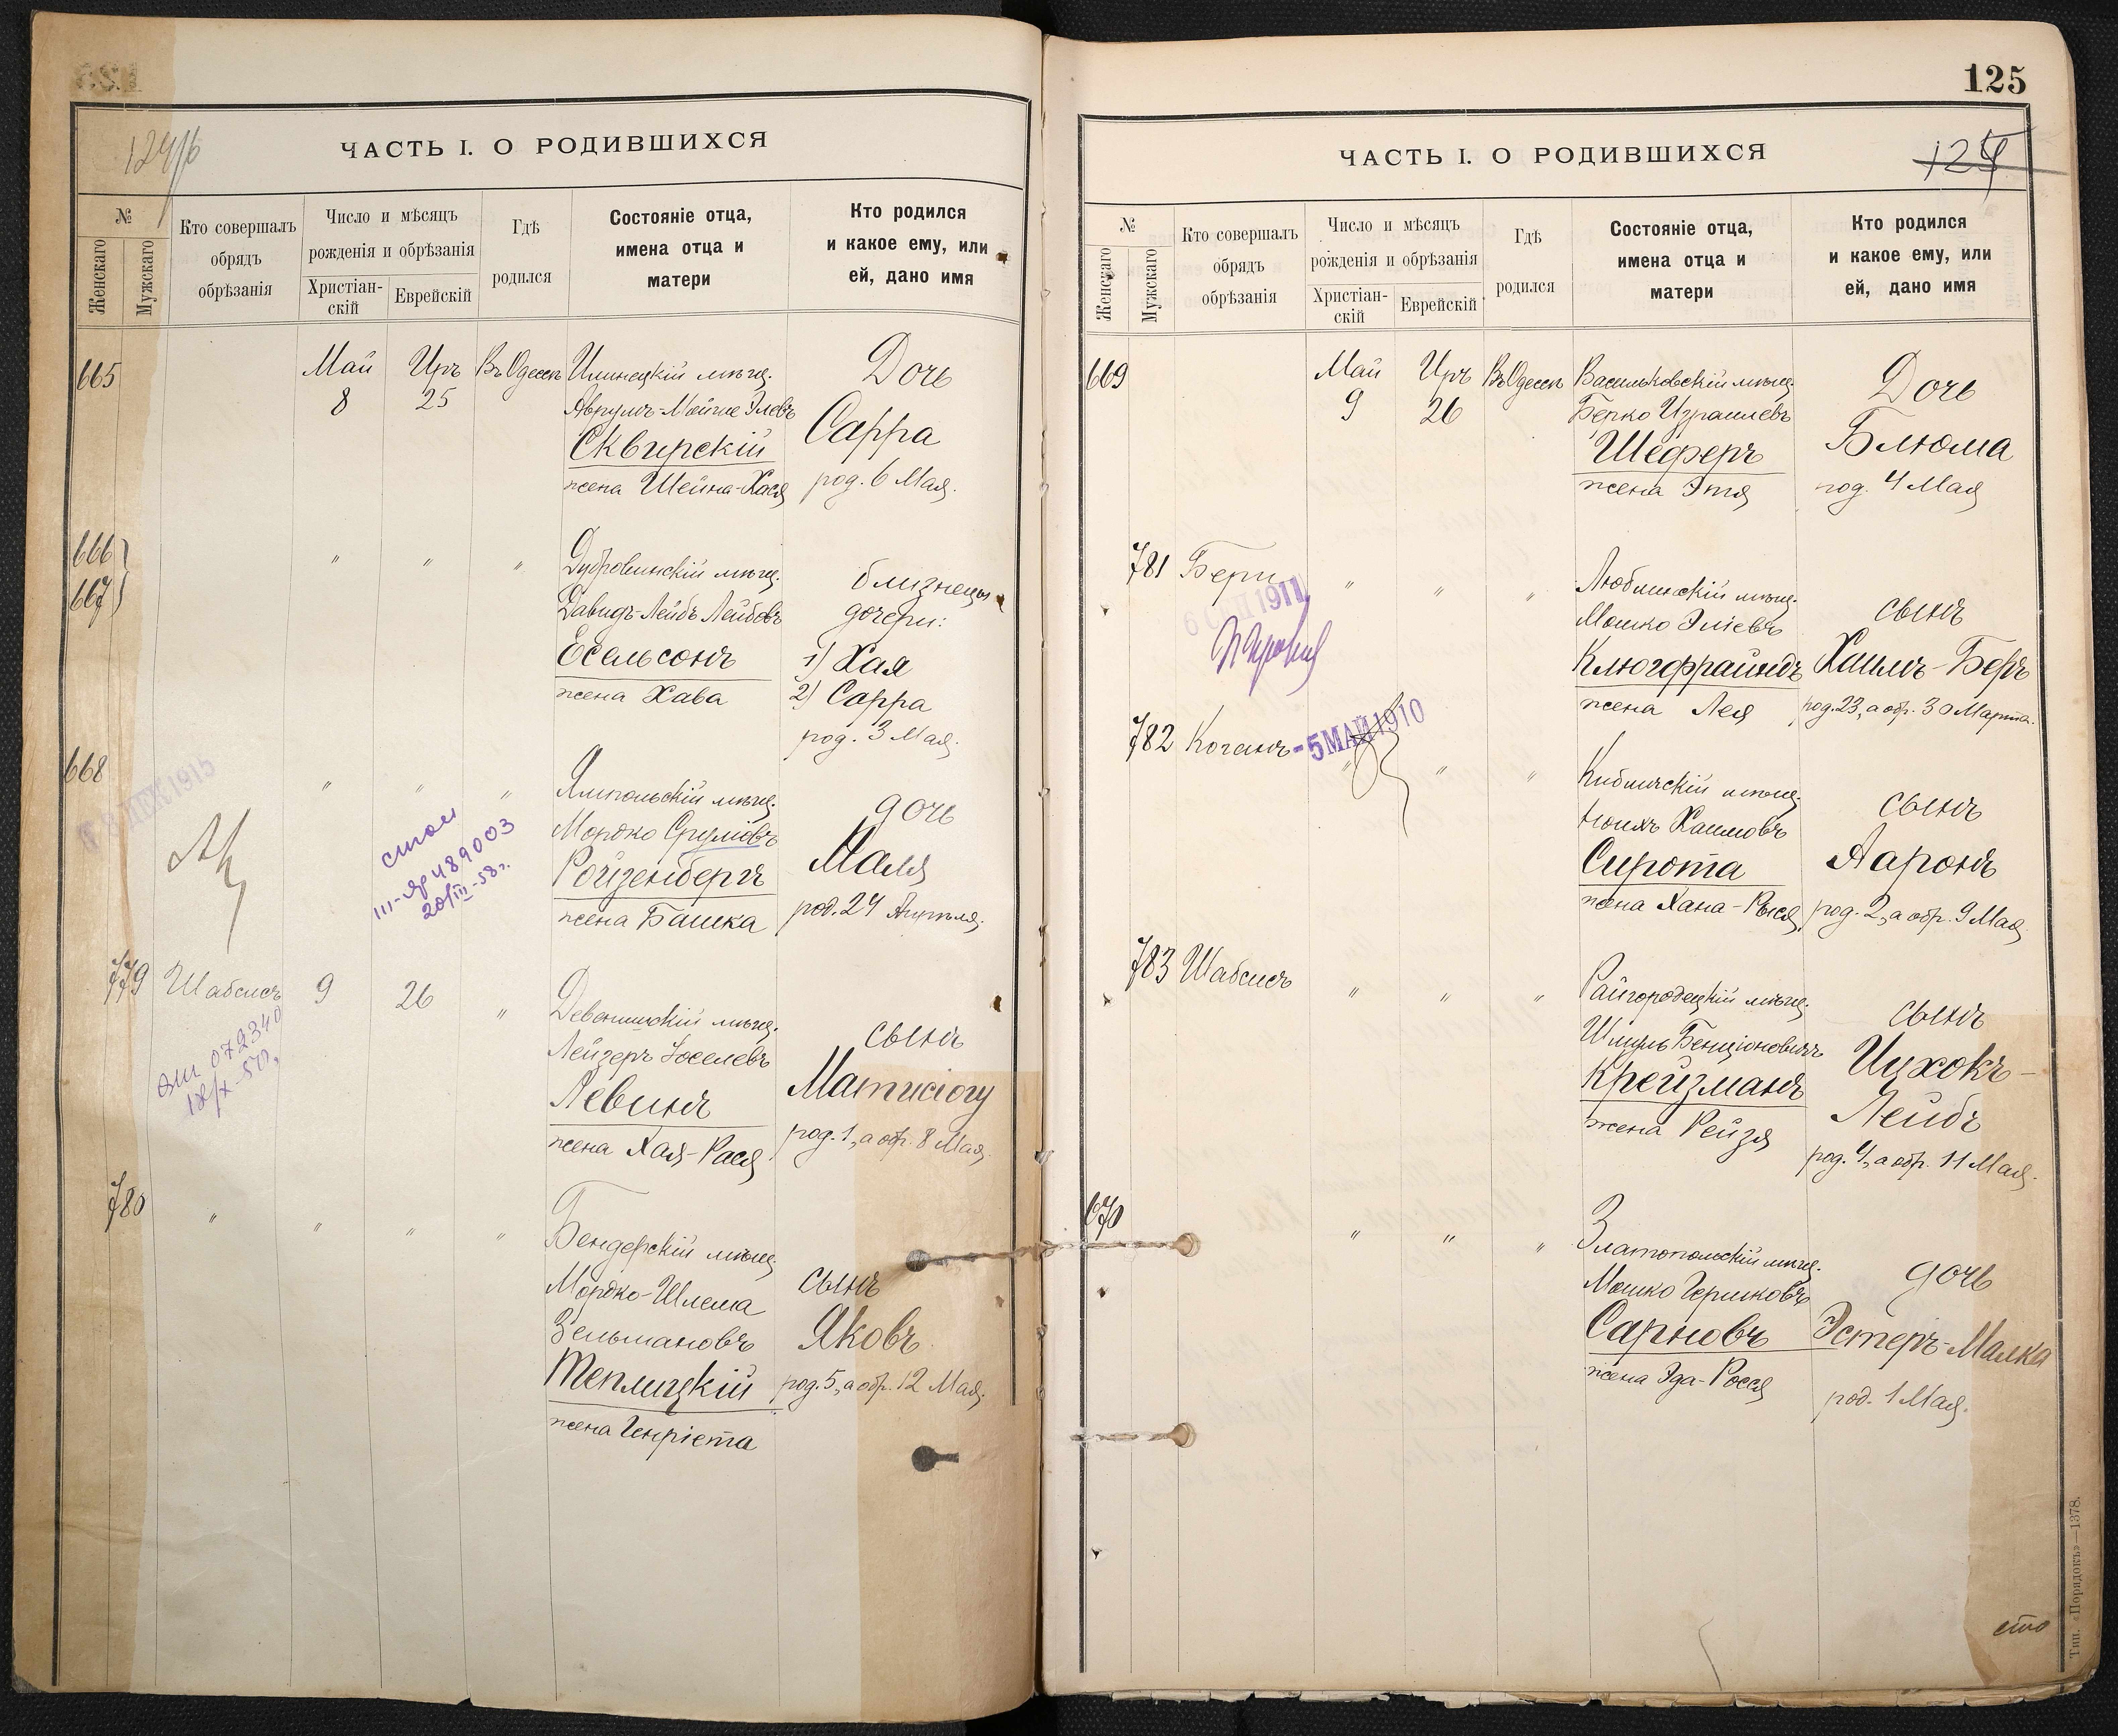 124/б
ЧАСТЬ I. О РОДИВШИХСЯ
№
Женскаго
Мужскаго
Кто совершалъ обрядъ обрѣзанія
Число и мѣсяцъ рожденія и обрѣзанія
Христіан-скій
Еврейскій
Гдѣ родился
Состояніе отца, имена отца и матери
Кто родился и какое ему, или ей, дано имя
665 Май Иръ Въ Одессѣ Илинецкій мѣщ. Дочь
8 25 Аврумъ-Мойше Элевъ
Сквирскій Сарра
жена Шейна-Хася род. 6 Мая.
666 " " " Дубровинскій мѣщ. близнецы
667 Давидъ-Лейбъ Лейбовъ дочери:
Есельсонъ 1) Хая
жена Хава 2) Сарра
род. 3 Мая.
668 " " " Ямпольскій мѣщ. дочь
Мордко Сруліовъ
Ройзенбергъ Маля
жена Башка род. 24 Апрѣля.
ДЕК 1915
III-яр 489003
20/III-58г.
779 Шабсисъ 9 26 " Девенишскій мѣщ. сынъ
Лейзеръ Іоселевъ
Левинъ Матисіогу
жена Хая-Рася род. 1, а обр. 8 Мая.
072340
780 " " " " Бендерскій мѣщ.
Мордко-Шлема сынъ
Зельмановъ Яковъ
Теплицкій род. 5, а обр. 12 Мая.
жена Генріета
125
124
ЧАСТЬ I. О РОДИВШИХСЯ
№
Женскаго
Мужскаго
Кто совершалъ обрядъ обрѣзанія
Число и мѣсяцъ рожденія и обрѣзанія
Христіан-скій
Еврейскій
Гдѣ родился
Состояніе отца, имена отца и матери
Кто родился и какое ему, или ей, дано имя
669 Май Иръ Въ Одессѣ Васильковскій мѣщ. Дочь
9 26 Берко Израилевъ
Шеферъ Блюма
жена Этя род. 4 Мая
781 Бери " " " Люблинскій мѣщ. сынъ
1911
Мошко Эліевъ
Клюгфрайндъ Хаимъ-Беръ
жена Лея род. 23, а обр. 30 Марта.
782 Коганъ " " " Кибличскій мѣщ. сынъ
-5 МАЙ 1910
Хаимовъ
Сирота Ааронъ
жена Хана-Рыся род. 2, а обр. 9 Мая
783 Шабсисъ " " " Райгородецкій мѣщ. сынъ
Шмуль Бенціоновичъ
Крейзманъ Ицхокъ-
жена Рейзя Лейбъ
род. 4, а обр. 11 Мая.
670 " " " Златопольскій мѣщ. дочь
Мошко Гершковъ
Сарновъ Эстеръ-Малка
жена Эда-Росся род. 1 Мая.
сто
Тип. «Порядокъ»—1378.